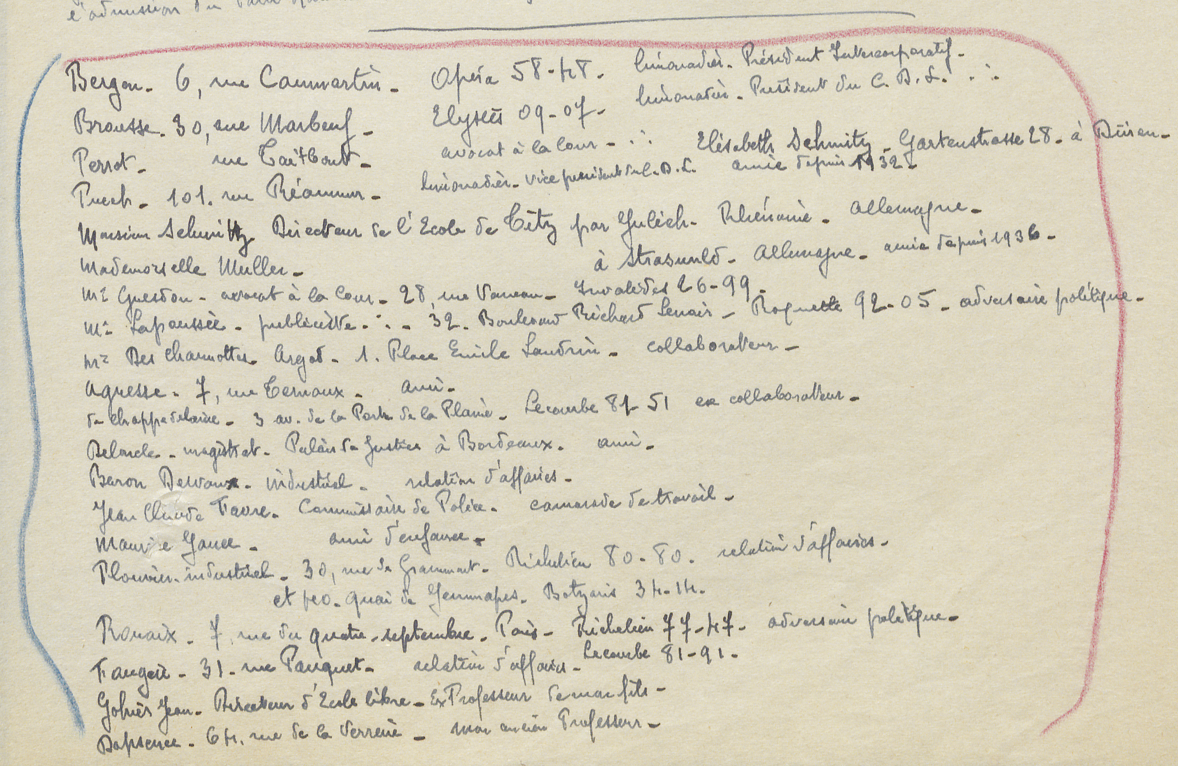 l'admission du
Bergon. 6, rue Caumartin. Opéra 58-48. limonadier. Président Intercorporatif.
Brousse. 30, rue Marbeuf. Elysées 09-07. limonadier. Président du C.D.L. ∴
Perrot. rue Taitbout. avocat à la Cour. ∴ Elisabeth Schmitz. Gartenstrasse 28. à Düren.
Puech. 101. rue Réaumur. limonadier. Vice président du C.D.L. amie depuis 1932.
Monsieur Schmitz Directeur de l'Ecole de Titz par Julich. Rhénanie. Allemagne.
Mademoiselle Muller. à Strasunld. Allemagne. amie depuis 1936.
Mr Guerdon. avocat à la Cour. 28, rue Vaneau. Invalides 26-99.
Mr Lapaussée. publiciste. ∴ 32. Boulevard Richard Lenoir. Roquette 92-05. adversaire politique.
Mr Des Charmottes Argod. 1. Place Emile Landrin. collaborateur.
Agresse. 7, rue Ternaux. ami.
de Chappedelaine. 3 av. de la Porte de la Plaine. Lecourbe 81-51 ex collaborateur.
magistrat. Palais de Justice à Bordeaux. ami.
Baron Dervaux. industriel. relation d'affaires.
Jean Claude Favre. Commissaire de Police. camarade de travail.
Maurice ami d'enfance.
Plouvier. industriel. 30, rue de Grammont. Richelieu 80-80. relation d'affaires.
et 140. quai de Jemmapes. Botzaris 34-14.
Rouaix. 7, rue du quatre-septembre. Paris. Richelieu 77-47. adversaire politique.
Faugère. 31. rue Pauquet. relation d'affaires. Lecourbe 81-91.
Gohier Jean. Directeur d'Ecole libre. Ex Professeur de mon fils.
64, rue de la Verrerie. mon ancien Professeur.